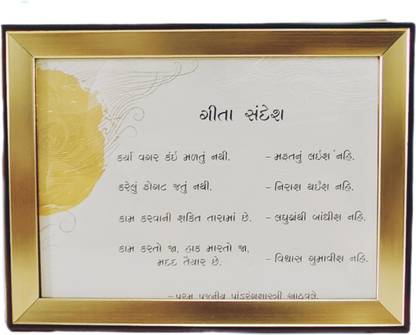 ગીતા સંદેશ
કર્યા વગર કંઈ મળતું નથી. - મફતનું લઈશ નહિ.
કરેલું ફોગટ જતું નથી. - નિરાશ થઈશ નહિ.
કામ કરવાની શક્તિ તારામાં છે. - લઘુગ્રંથી બાંધીશ નહિ.
કામ કરતો જા, હાક મારતો જા,
મદદ તૈયાર છે. - વિશ્વાસ ગુમાવીશ નહિ.
- પરમ પૂજનીય પાંડુરંગશાસ્ત્રી આઠવલે.